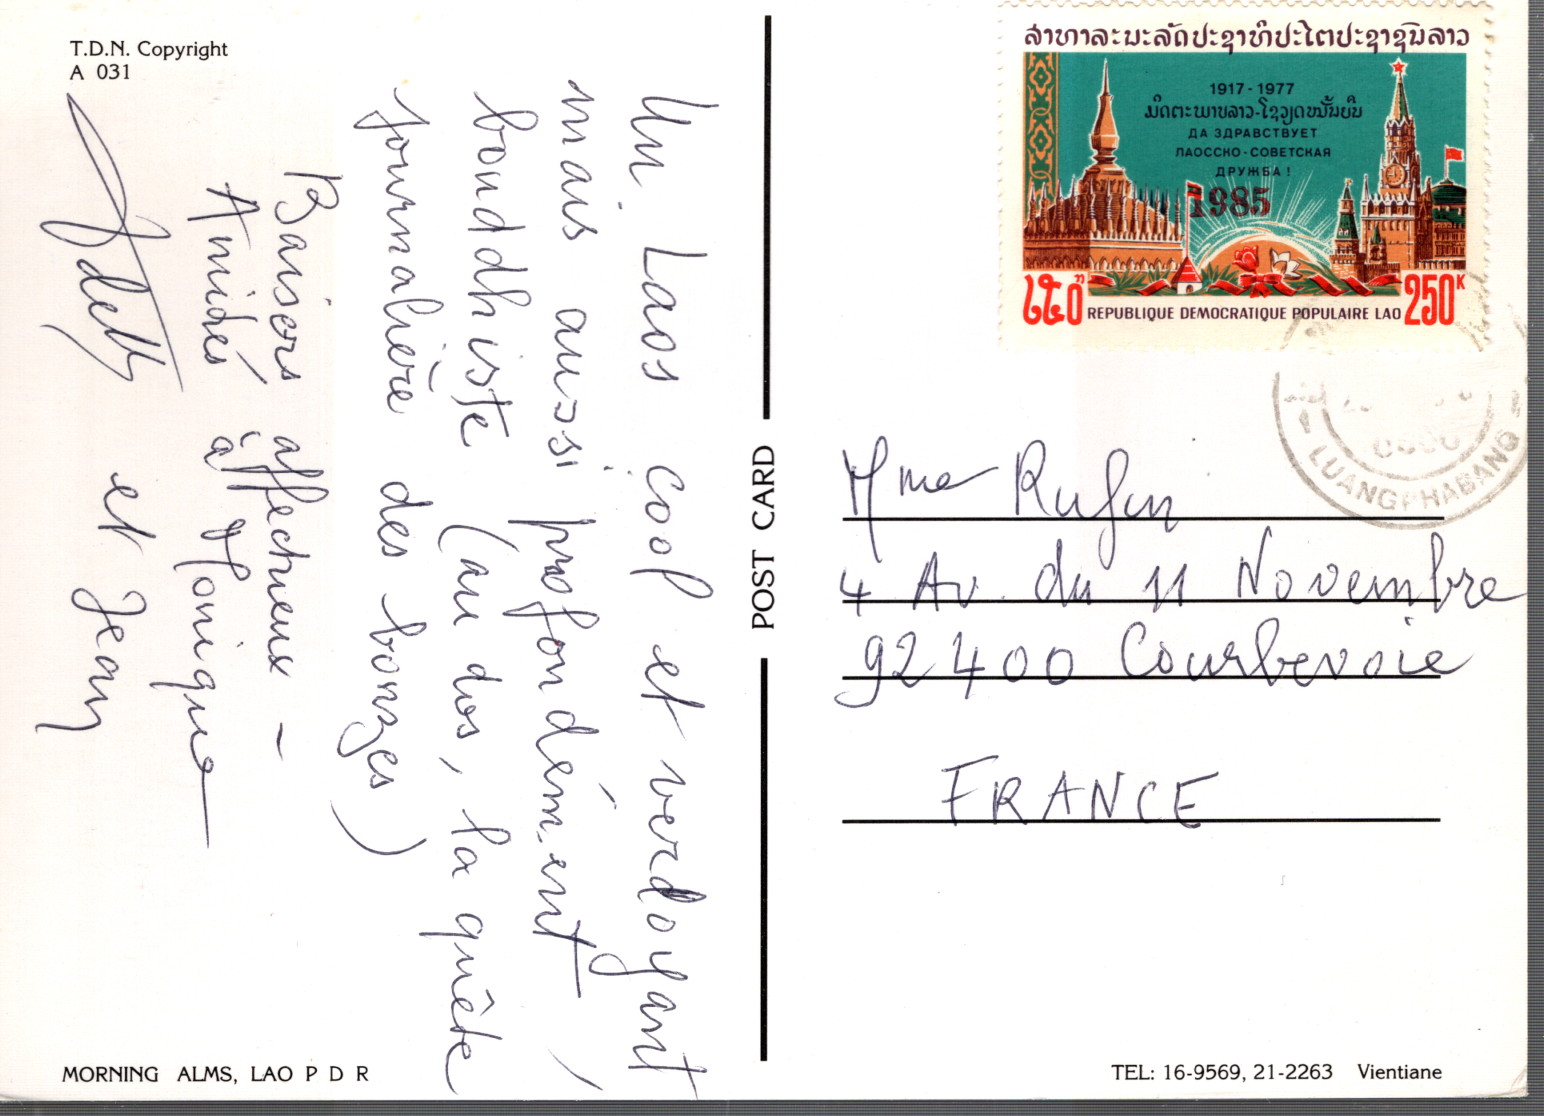 T.D.N. Copyright
A 031
Un Laos cool et verdoyant
mais aussi profondément,
bouddhiste (au dos, la quête
journalière des bonzes)
Baisers affectueux -
Amitiés à Monique
et Jean
POST CARD
MORNING ALMS, LAO P D R
ສາທາລະນະລັດປະຊາທິປະໄຕປະຊາຊົນລາວ
1917 - 1977
ມິດຕະພາບລາວ-ໂຊວຽດໝັ້ນຍືນ
ДА ЗДРАВСТВУЕТ
ЛАОССКО - СОВЕТСКАЯ
ДРУЖБА !
1985
REPUBLIQUE DEMOCRATIQUE POPULAIRE LAO 250K
LUANGPHABANG
Mme Rufin
4 Av. du 11 Novembre
92400 Courbevoie
FRANCE
TEL: 16-9569, 21-2263 Vientiane